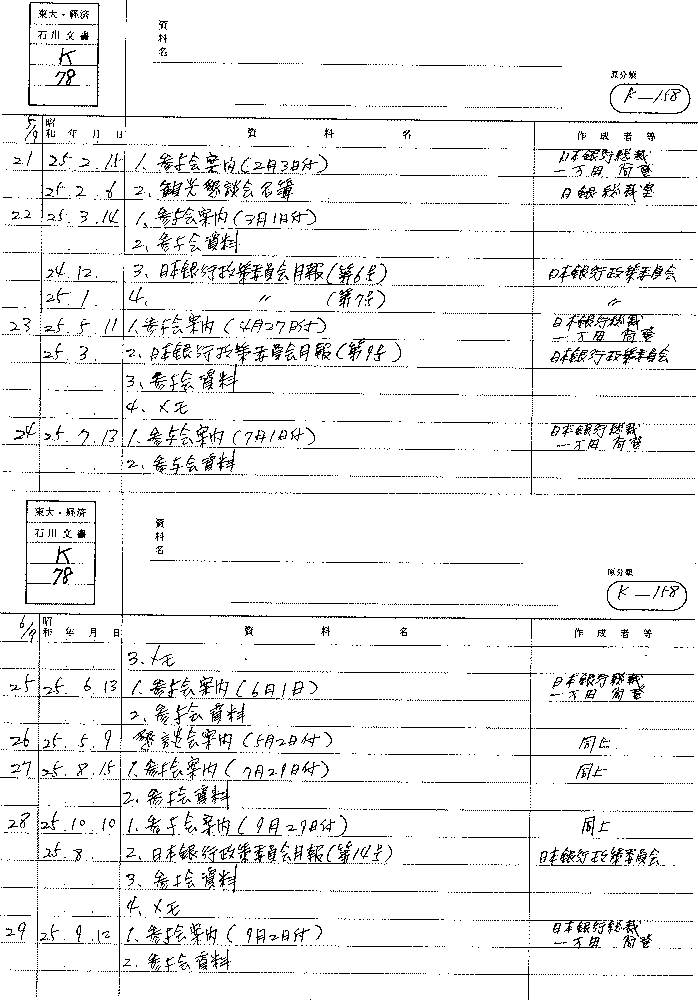 東大・経済
石川文書
K
78
資料名
原分類
K-158
5/9 昭和 年 月 日 資料名 作成者等
21 25.2.15 1、参与会案内(2月3日付) 日本銀行総裁 一万田尚登
25.2.6 2、観光懇談会名簿 日銀総裁室
22 25.3.14 1、参与会案内(3月1日付)
2、参与会資料
24.12. 3、日本銀行政策委員会月報(第6号) 日本銀行政策委員会
25.1. 4、 〃 (第7号) 〃
23 25.5.11 1.参与会案内(4月27日付) 日本銀行総裁 一万田尚登
25.3 2、日本銀行政策委員会月報(第9号) 日本銀行政策委員会
3、参与会資料
4、メモ
24 25.7.13 1、参与会案内(7月1日付) 日本銀行総裁 一万田尚登
2、参与会資料
東大・経済
石川文書
K
78
資料名
原分類
K-158
6/9 昭和 年 月 日 資料名 作成者等
3、メモ
25 25.6.13 1、参与会案内(6月1日) 日本銀行総裁 一万田尚登
2、参与会資料
26 25.5.9 懇談会案内(5月2日付) 同上
27 25.8.15 1.参与会案内(7月29日付) 同上
2、参与会資料
28 25.10.10 1、参与会案内(9月29日付) 同上
25.8 2、日本銀行政策委員会月報(第14号) 日本銀行政策委員会
3、参与会資料
4、メモ
29 25.9.12 1、参与会案内(9月2日付) 日本銀行総裁 一万田尚登
2、参与会資料